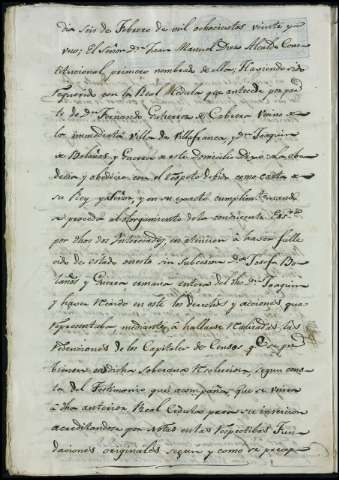 dia seis de Febrero de mil ochocientos veinte y
uno; El Señor Dn. Juan Manuel Diaz Alcalde Cons-
titucional primero nombrado de ella; Haviendo sido
requerido con la Real Cedula que antecede por par-
te de Dn. Fernando Gutierrez de Cabrera Vecino de
la inmediata Villa de Villafranca, y Dn. Joaquin
de Bolaños y Guerra de este Domicilio Dijo: La obe-
decia y obedecio con el respeto debido como carta de
su Rey y Señor, y en su exacto cumplimto.
se proceda al otorgamiento de la condicente Esc.ra
por dhos dos Interesados, en atencion a haver falle
cido de estado onesta sin subcesion Da. Josefa Bo-
laños y Guerra ermana entera del dho Dn. Joaquin
y haver recaido en este los derechos y acciones que
representaba mediante a hallarse realizadas las
redenciones de los Capitales de Censos que se pre
bienen en dicha Soberana Resolucion, segun cons-
ta del Testimonio que acompaña, que se unira
a dha anterior Real Cedula para su insercion
acreditandose por Notas en las respectibas Fun-
daciones originales segun y como se